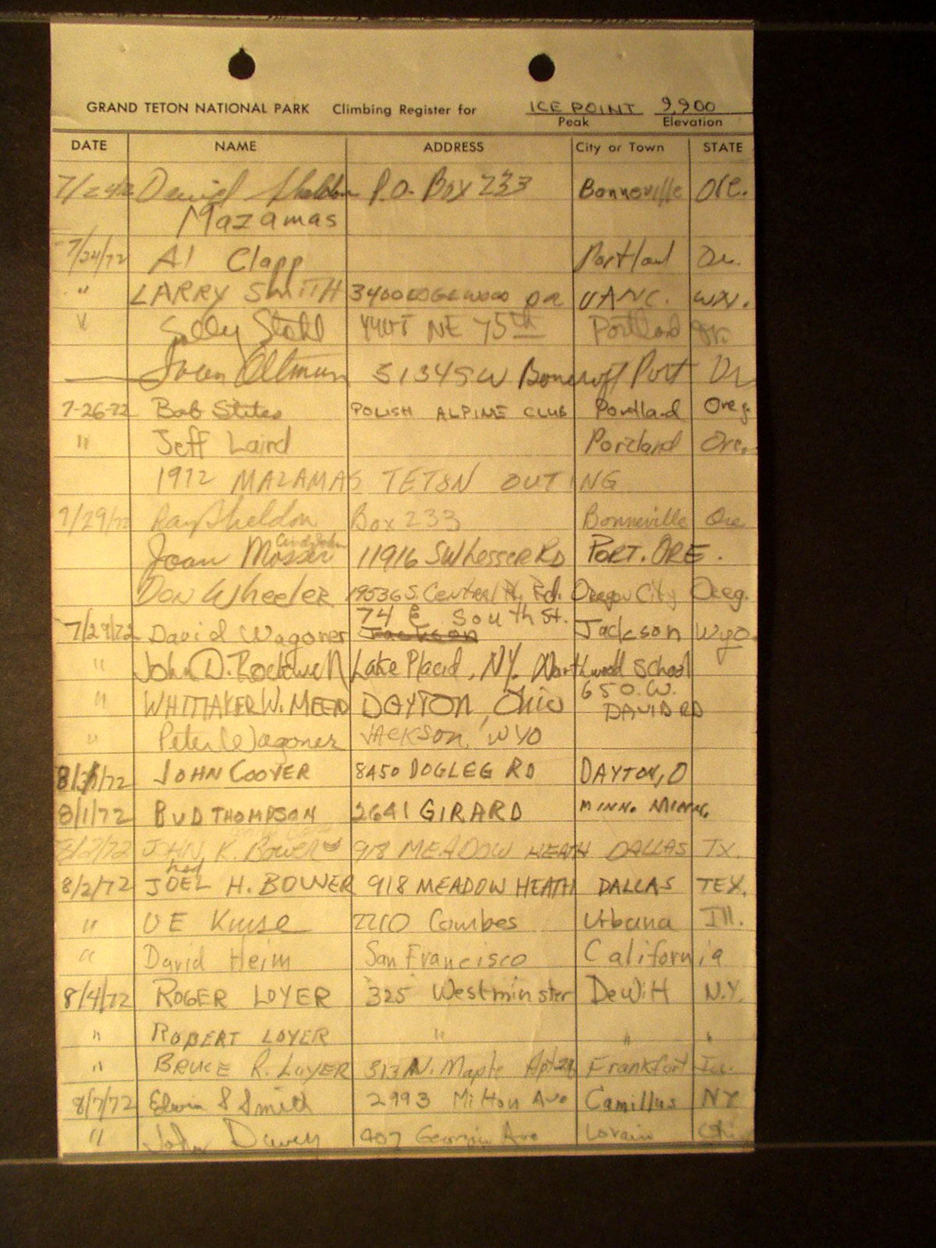 GRAND TETON NATIONAL PARK Climbing Register for ICE POINT 9,900
Peak Elevation
DATE NAME ADDRESS City or Town STATE
David Sheldon P.O. Box 233 Bonneville Ore.
Mazamas
7/24/72 Al Clapp Portland Or.
" LARRY SMITH 3400 EDGEWOOD DR VANC. WN.
" Stahl NE 75th Portland Or.
Oltman 5134 SW Port Or
7-26-72 Bob Stites POLISH ALPINE CLUB Portland Oreg
" Jeff Laird Portland Ore.
1972 MAZAMAS TETON OUTING
7/29/72 Ray Sheldon Box 233 Bonneville Ore
Joan Mosser 11916 SW Lesser RD PORT. ORE.
Don Wheeler 19536 S. Central Pt. Rd. Oregon City Oreg.
74 E South St.
7/29/72 David Wagoner Jackson Jackson Wyo.
" John D. Rockwell Lake Placid, NY. Northwood School
" WHITTAKER W. MEED DAYTON, Ohio 650 W.
DAVID RD
" Peter Wagoner JACKSON, WYO
8/1/72 JOHN COOVER 8450 DOGLEG RD DAYTON, O
8/1/72 BUD THOMPSON 2641 GIRARD MINN. MINN.
8/2/72 JOHN K. Bower 918 MEADOW HEATH DALLAS TX.
8/2/72 JOEL H. BOWER 918 MEADOW HEATH DALLAS TEX.
" UE Kruse 2210 Combes Urbana Ill.
" David Heim San Francisco California
8/4/72 ROGER LOYER 325 Westminster DeWitt N.Y.
" ROBERT LOYER " " "
" BRUCE R. LOYER 313 N. Maple Apt Frankfort
8/7/72 Edwin S Smith 2993 Milton Ave Camillus NY
" John Davey 407 Georgia Ave Lorain Ohio